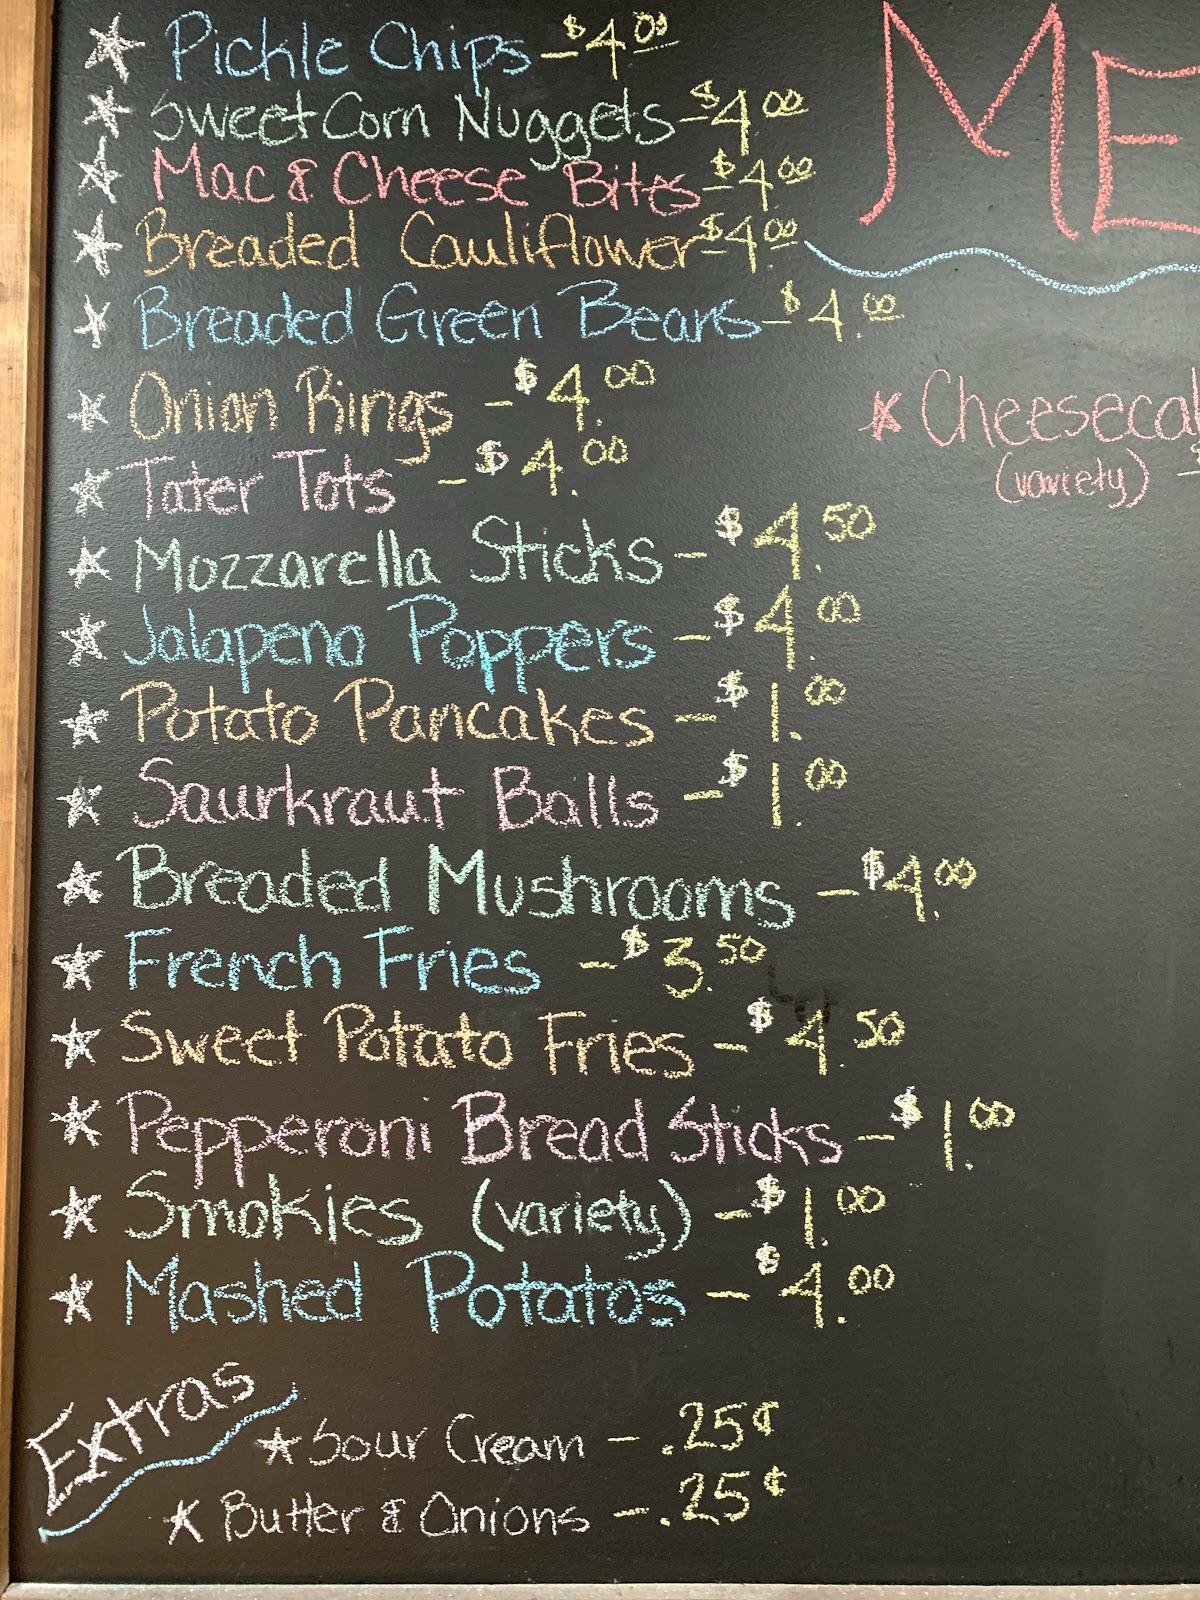 Pickle Chips - $4.00
Sweet Corn Nuggets - $4.00
Mac & Cheese Bites - $4.00
Breaded Cauliflower - $4.00
Breaded Green Beans - $4.00
Onion Rings - $4.00
Tater Tots - $4.00
Mozzarella Sticks - $4.50
Jalapeno Poppers - $4.00
Potato Pancakes - $1.00
Saurkraut Balls - $1.00
Breaded Mushrooms - $4.00
French Fries - $3.50
Sweet Potato Fries - $4.50
Pepperoni Bread Sticks - $1.00
Smokies (variety) - $1.00
Mashed Potatos - $4.00
Extras
Sour Cream - .25¢
Butter & Onions - .25¢
ME
Cheeseca
(variety)